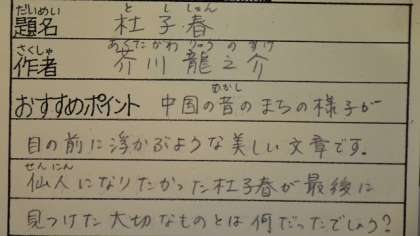 だいめい とししゅん
題名 杜子春
さくしゃ あくたがわりゅうのすけ
作者 芥川龍之介
おすすめポイント 中国の昔のまちの様子が
むかし
目の前に浮かぶような美しい文章です。
せんにん
仙人になりたかった杜子春が最後に
見つけた大切なものとは何だったでしょう?